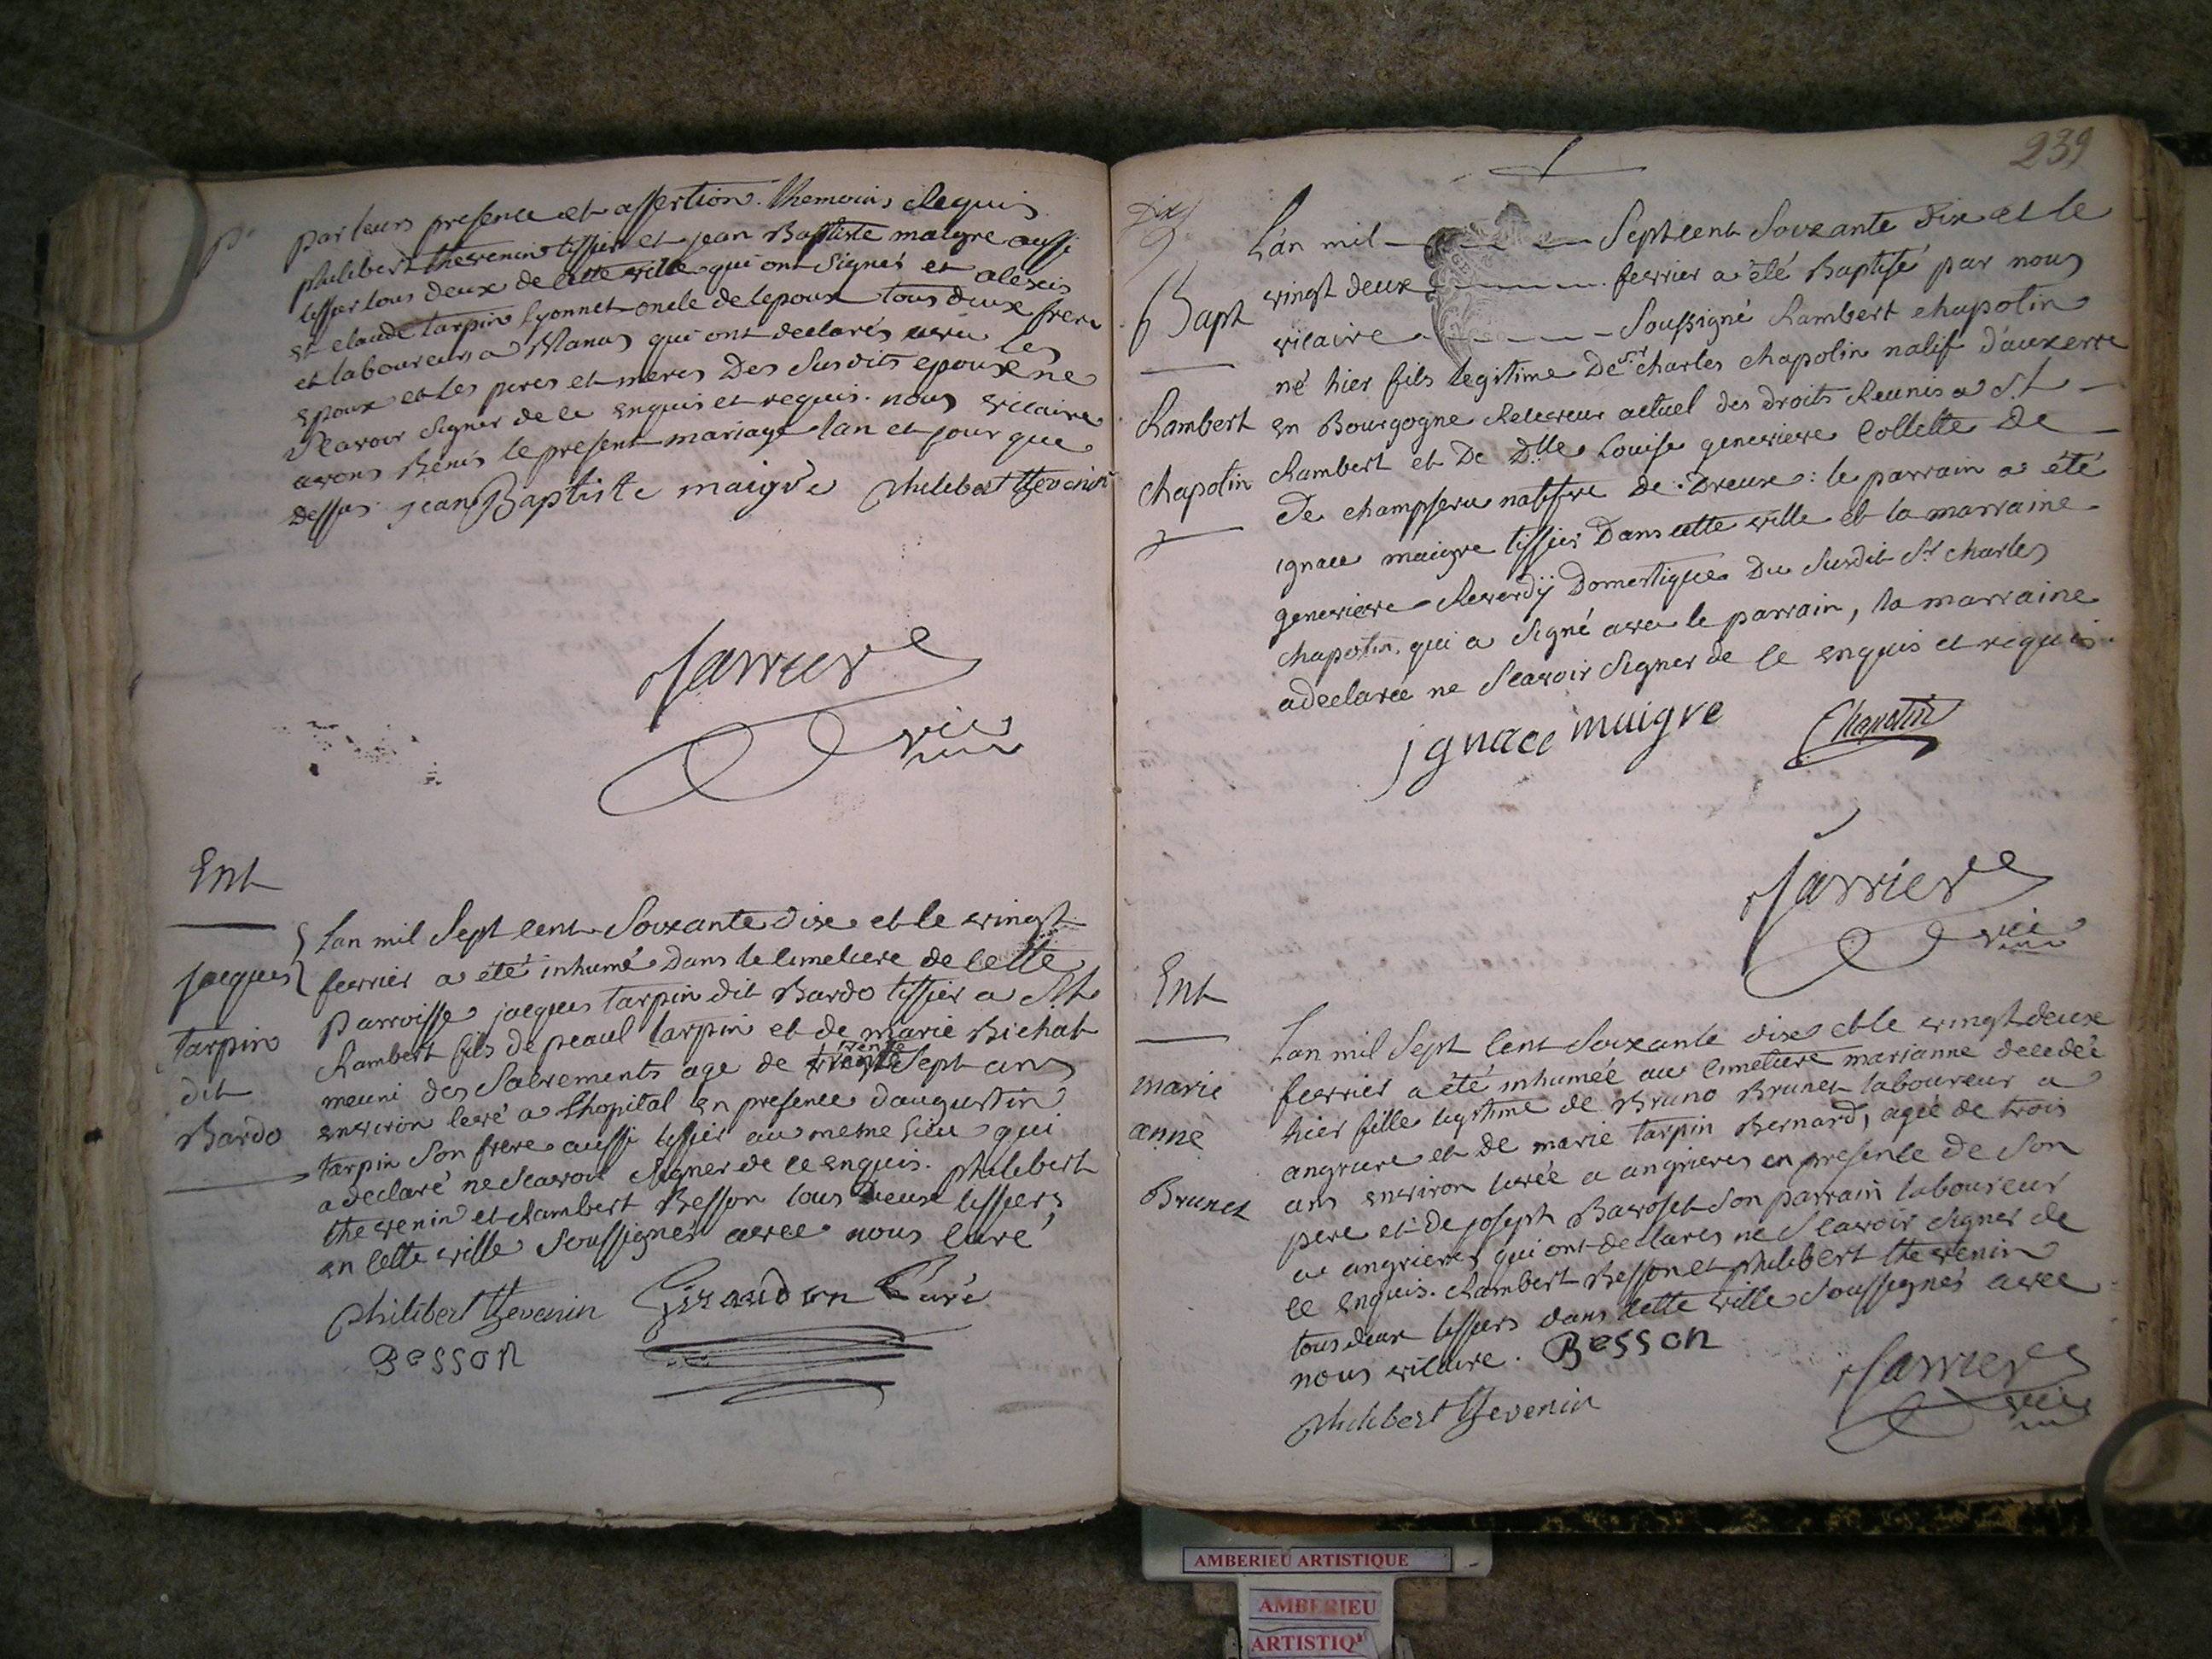 par leurs presence et assertion. themoins Requis
philibert thevenin tissier et jean Baptiste maigre aussi
tissier tous deux de cette ville qui ont signés et alexis
et claude tarpin Lyonnet oncle de lepoux tous deux frere
et laboureurs a Manas qui ont declarés avec les
epoux et les peres et meres Des susdits epoux ne
Scavoir signer de ce enquis et requis. nous vicaire
avons Benis le present mariage lan et jour que
dessus. jean Baptiste maigre philibert thevenin
Jarriere
vic
Ent
jacques
tarpin
dit
Bardo
Lan mil Sept cent Soixante dix et le vingt
fevrier a été inhumé Dans le cimetiere de cette
Parroisse jacques tarpin dit Bardo tissier a St
Rambert fils de peaul tarpin et de marie Bichat
meuni des Sacrements age de trente Sept ans
environ levé a l'hopital en presence d'augustin
tarpin Son frere aussi tissier au meme lieu qui
a declaré ne Scavoir signer de ce enquis. philibert
thevenin et Rambert Besson tous Deux tissiers
en cette ville Soussignés avec nous curé
philibert thevenin Girandon Curé
Besson
239
Dix
Bapt
Rambert
chapotin
L'an mil Sept cent Soixante Dix et le
vingt deux fevrier a été Baptisé par nous
vicaire Soussigné Rambert chapotin
né hier fils legitime De Sr charles chapotin natif d'auxerre
en Bourgogne Receveur actuel des droits Reunis a St
Rambert et De Dlle Louise genevieve Collette De
De champseru natifve De Dreux: le parrain a été
ignace maigre tissier Dans cette ville et la marraine
genevieve Reverdÿ Domestique Du Susdit Sr charles
chapotin, qui a Signé avec le parrain, la marraine
a declarée ne Scavoir Signer de ce enquis et requis
ignace maigre Chapotin
Jarriere
vic
Ent
marie
anne
Brunet
Lan mil Sept cent Soixante dix et le vingt deux
fevrier a été inhumée au cimetiere marianne decedée
hier fille legitime de Bruno Brunet laboureur a
angriere et de marie tarpin Bernard, agée de trois
ans environ levée a angrieres en presence de Son
pere et de joseph Bavoset Son parrain laboureur
a angrieres qui ont declarés ne Scavoir Signer de
ce enquis. Rambert Besson et philibert thevenin
tous deux tissiers dans cette ville Soussignés avec
nous vicaire. Besson
philibert thevenin Jarriere
vic
AMBERIEU ARTISTIQUE
AMBERIEU
ARTISTIQ